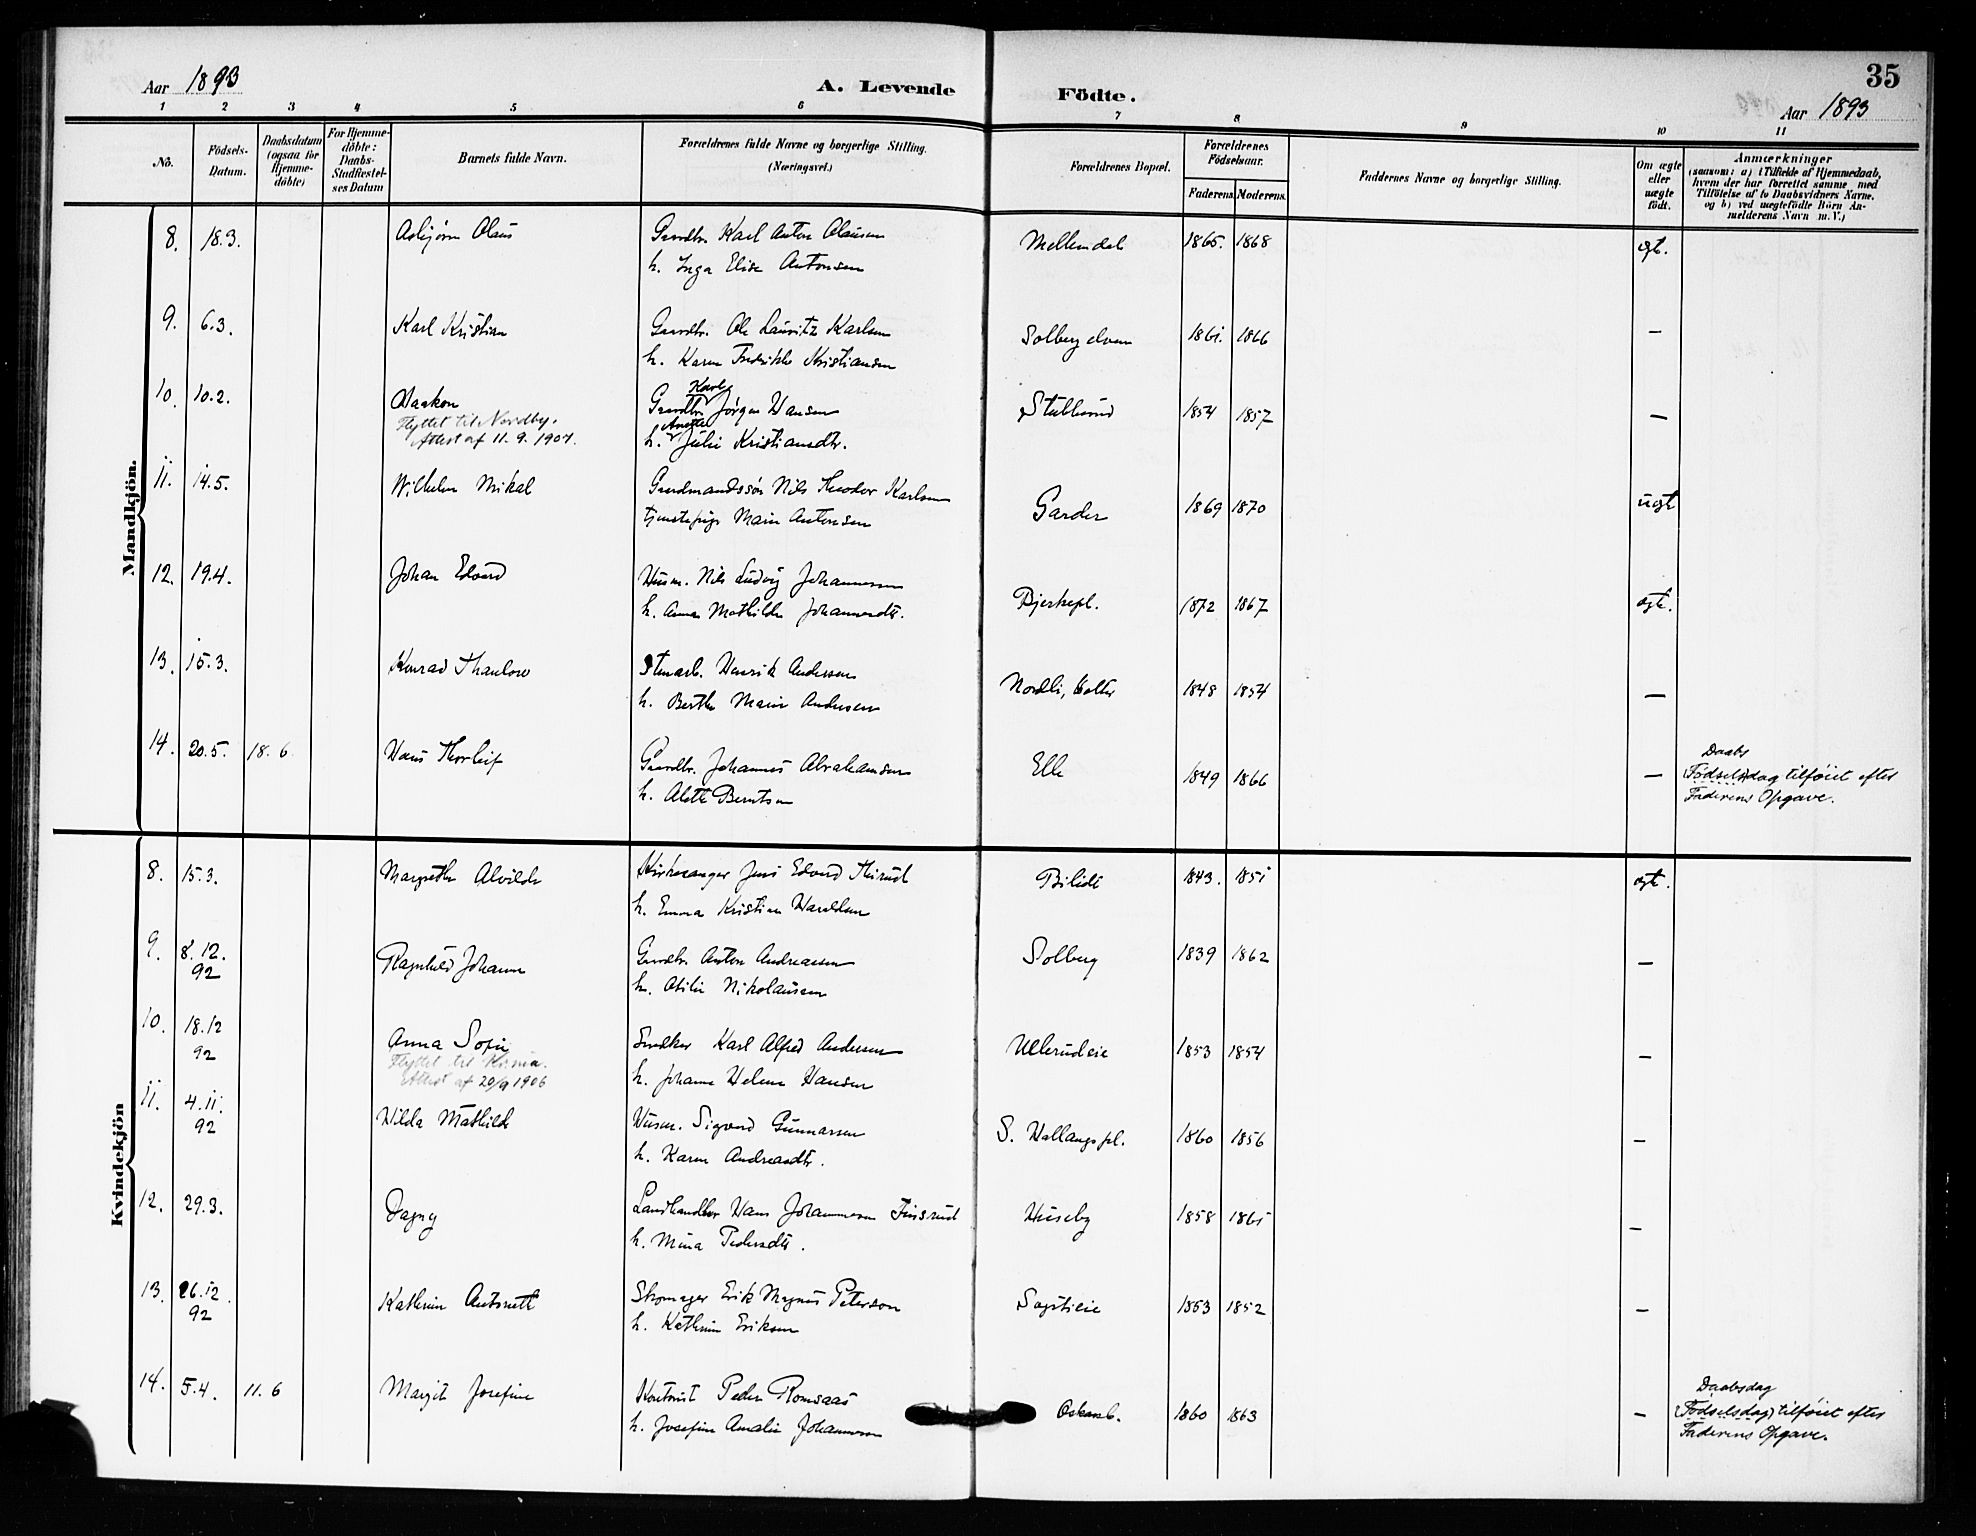 35
Aar 1893
A. Levende Födte.
Aar 1893
1 2 3 4 5 6 7 8 9 10 11
No.
Födsels-Datum.
Daabsdatum (ogsaa for Hjemme-döbte)
For Hjemme-döbte: Daabs-Stadfæstel-ses Datum
Barnets fulde Navn.
Forældrenes fulde Navne og borgerlige Stilling.
(Næringsvei.)
Forældrenes Bopæl.
Forældrenes Födselsaar.
Faderens. Moderens.
Faddernes Navne og borgerlige Stilling.
Om ægte eller uægte født.
Anmærkninger
(saasom: a) i Tilfælde af Hjemmedaab,
hvem der har forrettet samme med
Tilföielse af to Daabsvidners Navne.
og b) ved uægtefödte Börn An-
melderens Navn m. V.)
Mandkjön.
8. 18.3. Asbjørn Olaus Gaardbr. Karl Anton Olausen Mellemdal 1865. 1868 egt.
h. Inga Elise Antonsen
9. 6.3. Karl Kristian Gaardbr. Ole Lauritz Karlsen Solberg 1861. 1866 —
h. Karen Fredrikke Kristiansen
10. 10.2. Haakon Gaardbr. Karl Jørgen Hansen Stubberud 1854 1857 —
Flyttet til Nordby.
Attest af 11.9.1907.
h. Anette Julie Kristiansdtr.
11. 14.5. Wilhelm Mikal Gaardmandssøn Nils Theodor Karlsen Garder 1869 1870 uegt
tjenestepige Marie Antonsen
12. 19.4. Johan Edvard Husm. Nils Ludvig Johannessen Bjerkepl. 1872 1867 egte.
h. Anna Mathilde Johannesdtr.
13. 15.3. Konrad Thaulow Stenarb. Henrik Andersen Nordli, Holter 1848 1854 —
h. Berthe Marie Andersen
14. 20.5. 18.6 Hans Thorleif Gaardbr. Johannes Abrahamsen Elle 1849 1866 —
h. Alette Berntsen
Daabs
(Födsels)dag tilföiet efter
Faderens Opgave.
Kvindekjön
8. 15.3. Margrethe Alvilde Kirkesanger Jens Edvard Thirud Bilidt 1843. 1851 egte.
h. Emma Kristine Haraldsen
9. 8.12. 92 Ragnhild Johanne Gaardbr. Anton Andreassen Solberg 1839 1862 —
h. Otilie Nikolausen
10. 18.12 92 Anna Sofie Snedker Karl Alfred Andersen Ullerudeie 1853 1854 —
Flyttet til Kr.nia.
Attest af 20/9 1906
h. Johanne Helene Hansen
11. 4.11. 92 Hilda Mathilde Husm. Sigvard Gunnarsen S. Hallangspl. 1860 1856 —
h. Karen Andreasdtr.
12. 29.3. Dagny Landhandler Hans Johannesen Huseby 1858 1861 —
h. Mina Pedersdtr.
13. 26.12. 92 Kathrine Antonette Skomager Erik Magnus Peterson Sogstieie 1853 1852 —
h. Kathrine Eriksen
14. 5.4. 11.6 Margit Josefine Peder Romsaas Oskarsb. 1860 1863 —
h. Josefine Amalie Johannessen
Daabsdag
(Födselsdag) tilföiet efter
Faderens Opgave.